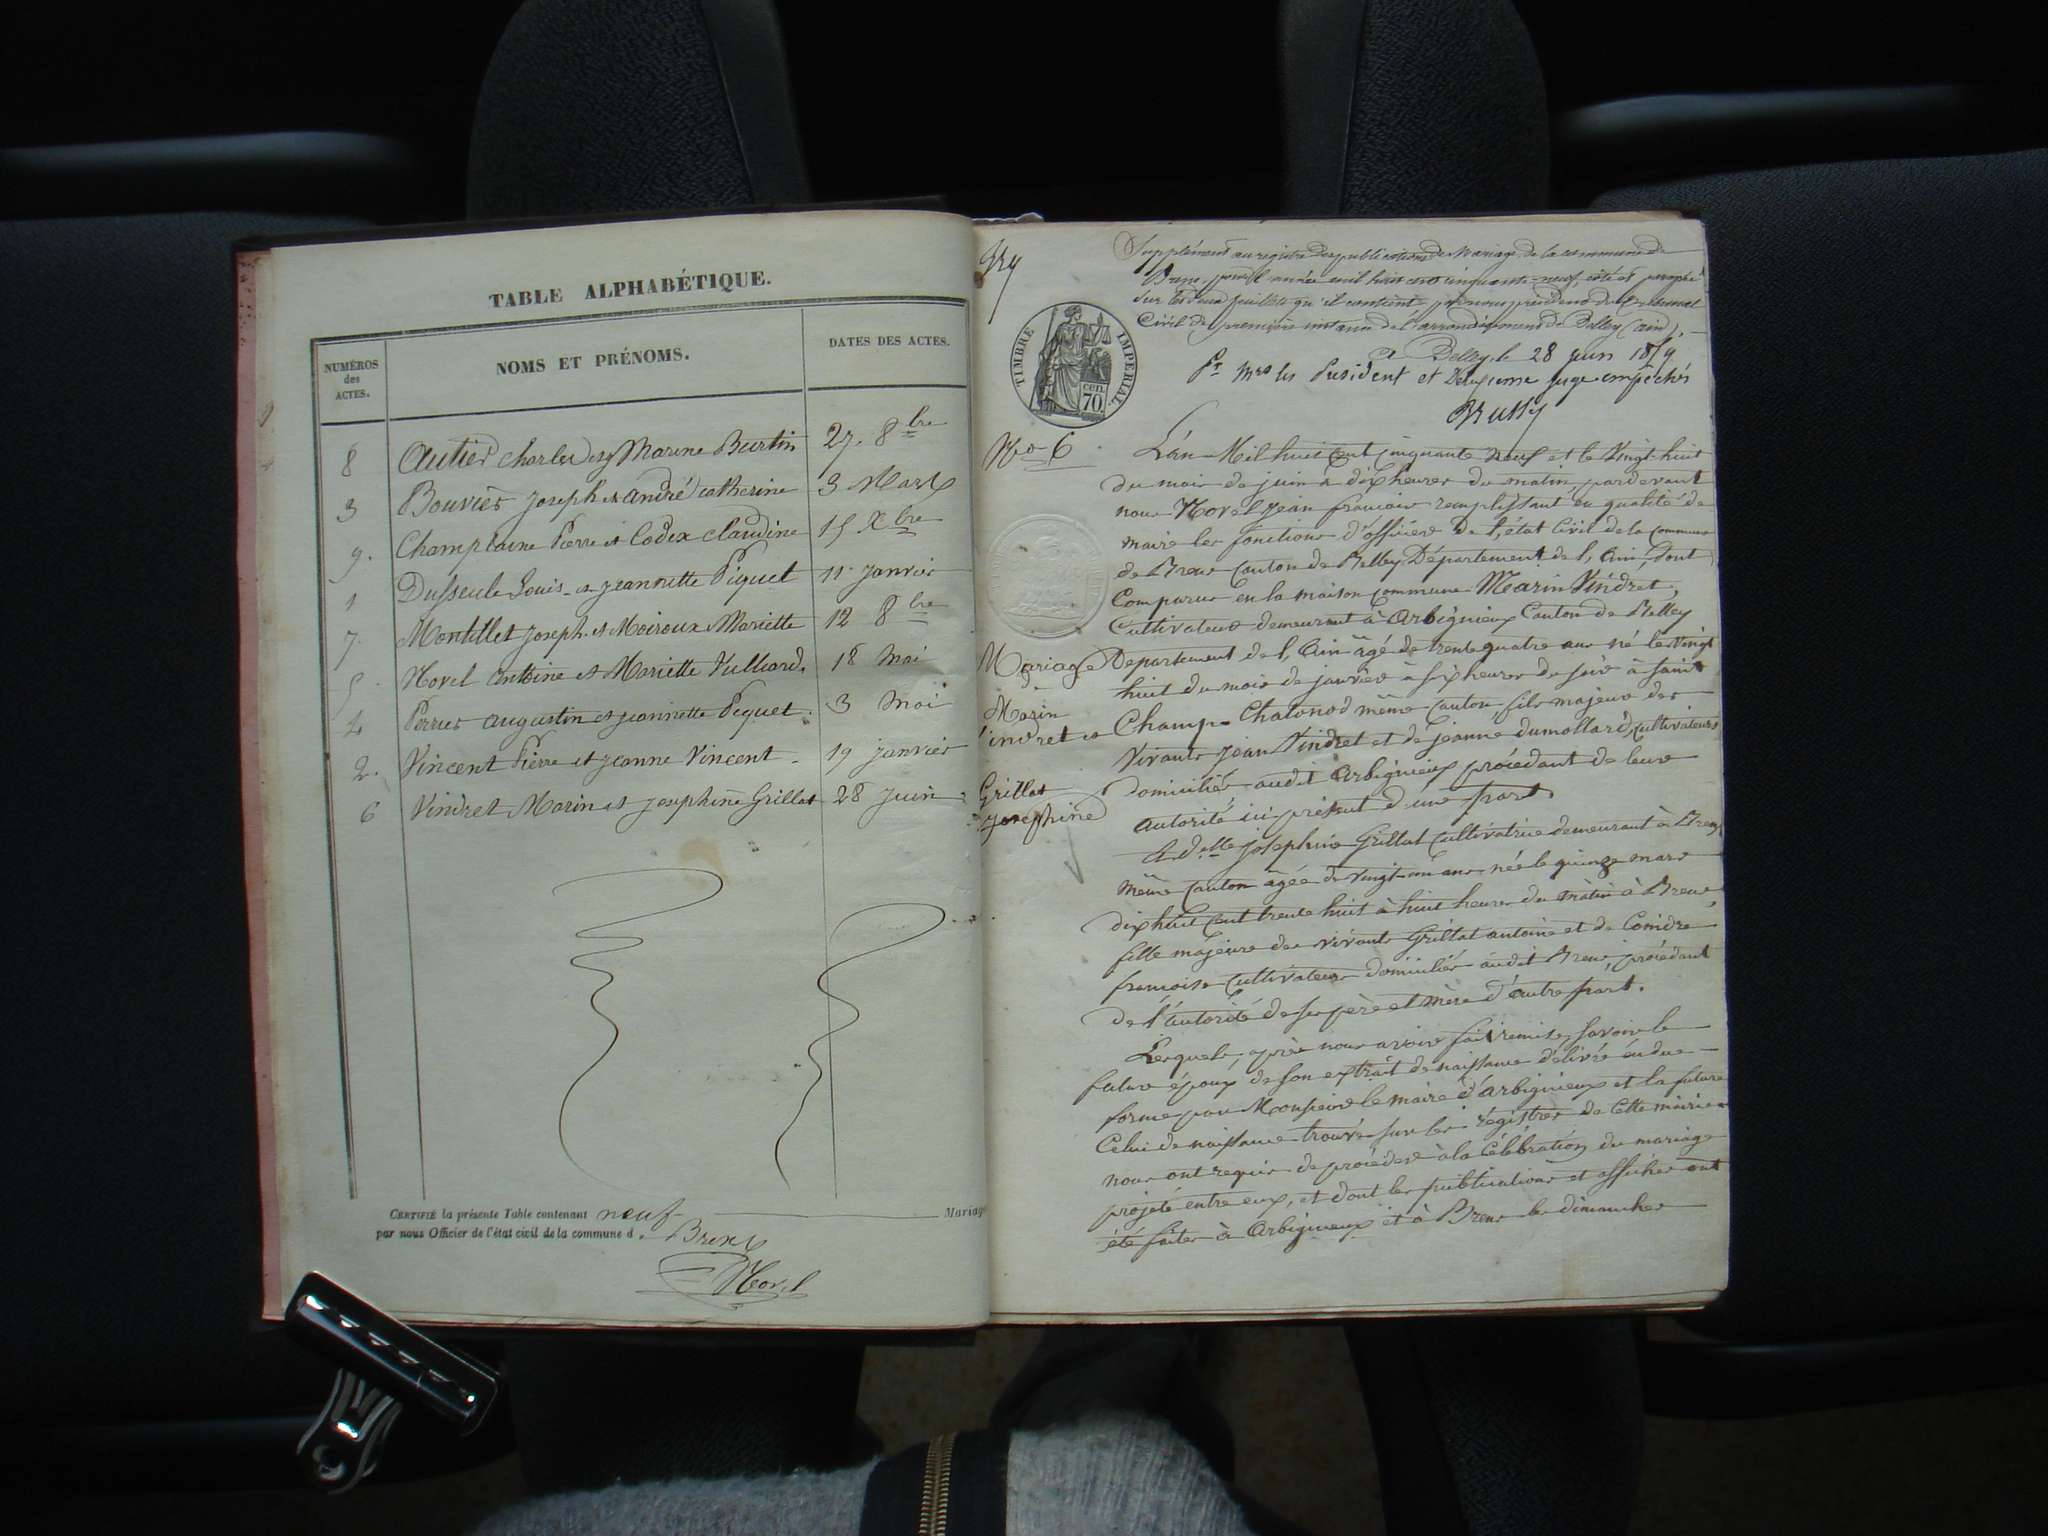 TABLE ALPHABÉTIQUE.
NUMÉROS des ACTES.
NOMS ET PRÉNOMS.
DATES DES ACTES.
8 Autier Charles et Marine Burtin 27. 8bre
3 Bouvier Joseph et André Catherine 3 Mars
9. Champlaine Pierre et Codex Claudine 15 Xbre
1 Dusseule Louis et Jeannette Piquet 11 Janvier
7. Montillet Joseph et Moiroux Mariette 12 8bre
5. Morel Antoine et Mariette Vulliard 18 Mai
4 Perrier Augustin et Jeannette Piquet 3 Mai
2. Vincent Pierre et Jeanne Vincent 19 Janvier
6 Vindret Marin et Josephine Grillat 28 Juin
CERTIFIÉ la présente Table contenant neuf Mariage
par nous Officier de l'état civil de la commune d Brens
Morel
Supplément au registre des publications de Mariage de la commune de
Brens, pour l'année mil huit cent cinquante neuf, coté et paraphé
sur les deux feuillets qu'il contient par nous président du tribunal
Civil de première instance de l'arrondissement de Belley (ain).
A Belley le 28 juin 1859
Pr Mrs les President et Deuxieme juge empéchés
TIMBRE IMPERIAL
70 cen.
No 6
L'an Mil huit cent cinquante neuf et le Vingt huit
du mois de juin à dix heures du matin, pardevant
nous Morel Jean françois remplissant en qualité de
maire les fonctions d'officier de l'état Civil de la Commune
de Brens Canton de Belley Département de l'Ain, sont
Comparus en la maison commune Marin Vindret,
Cultivateur demeurant à Arbignieux Canton de Belley
Mariage
Département de l'Ain âgé de trente quatre ans né le vingt
huit du mois de janvier à six heures du soir à Saint
Marin
Vindret et
Champ Chatonod même canton, fils majeur des
Vivants Jean Vindret et de Jeanne dumollard, cultivateurs
Grillat
Josephine
domiciliés audit Arbignieux procédant de leur
autorité ici présent d'une part.
Et Delle Josephine Grillat Cultivatrice demeurant à Brens
même Canton âgée de vingt un ans née le quinze mars
dix huit cent trente huit à huit heures du matin à Brens,
fille majeure des vivants Grillat antoine et de Comdre
françoise Cultivateurs domiciliés audit Brens, procédant
de l'autorité de ses père et mère d'autre part.
Lesquels, après nous avoir fait remise, savoir le
futur époux de son extrait de naissance délivré en due
forme par Monsieur le maire d'Arbignieux et la future
Celui de naissance trouvé sur les régistres de cette mairie
nous ont requis de procéder à la Célébration du mariage
projeté entre eux, et dont les publications et affiches ont
été faites à Arbignieux et à Brens les dimanches